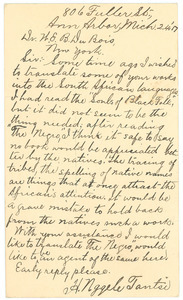 806 Fuller St,
Ann Arbor, Mich. 2/6/17
Dr. W. E. B. Du Bois,
New York.
Sir: Some time ago I wished
to translate some of your works
into the South African languages
I had read the Souls of Black Folk,
but it did not seem to be the
thing needed after reading
The Negro I think it safe to say
no book would be appreciated bet-
ter by the natives. The tracing of
tribes, the spelling of native names
are things that at once attract the
African's attention. It would be
a grave mistake to hold back
from the natives such a work.
With your assistance I would
like to translate The Negro, would
like to be an agent of the same here
Early reply please.